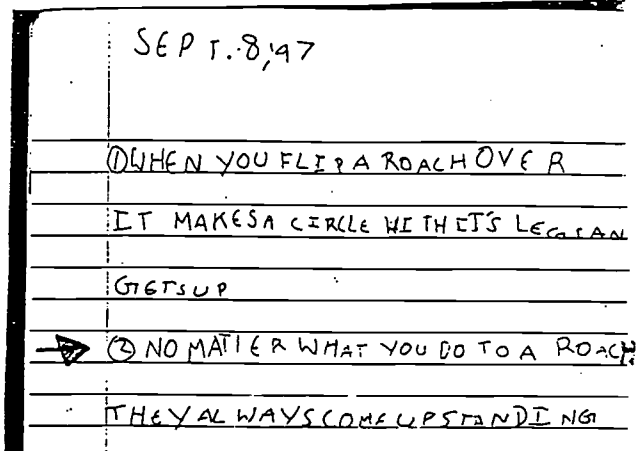 SEPT. 8,'97
① WHEN YOU FLIP A ROACH OVER
IT MAKES A CIRCLE WITH IT'S LEGS AN
GETS UP
② NO MATTER WHAT YOU DO TO A ROACH
THEY ALWAYS COME UP STANDING